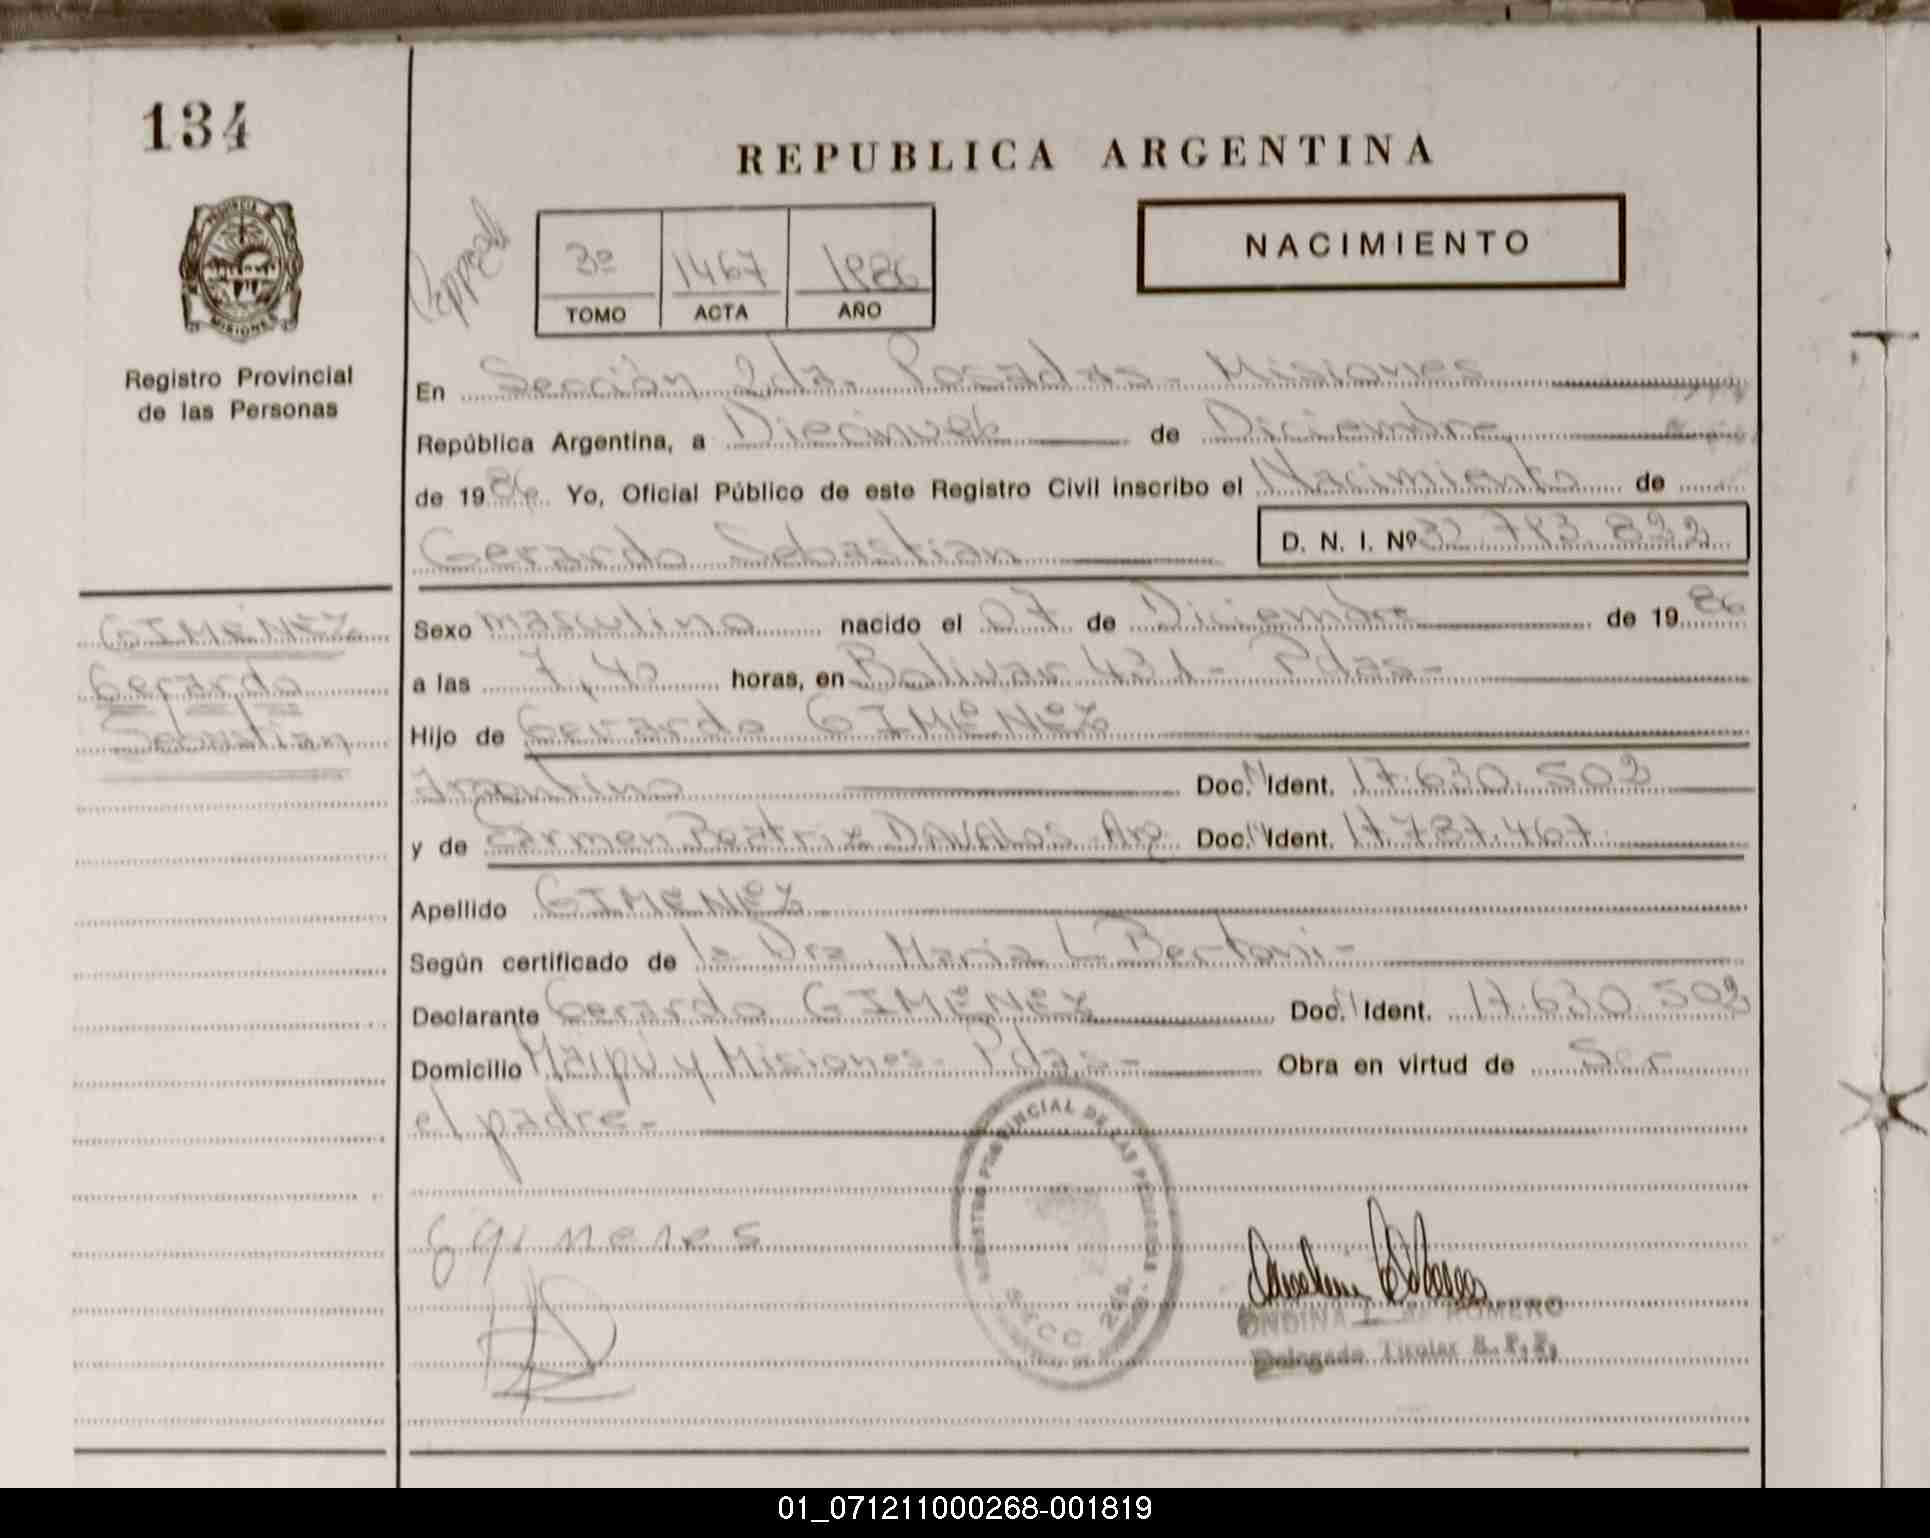 134
REPUBLICA ARGENTINA
PROVINCIA DE
MISIONES
Registro Provincial
de las Personas
3º 1467 1986
TOMO ACTA AÑO
NACIMIENTO
En Sección 2da. Posadas - Misiones
República Argentina, a Diecinueve de Diciembre
de 1986. Yo, Oficial Público de este Registro Civil inscribo el Nacimiento de
Gerardo Sebastian D. N. I. Nº 32.783.832
GIMéNEZ
Gerardo
Sebastian
Sexo masculino nacido el 07 de Diciembre de 1986
a las 7,40 horas, en Bolivar 431 - Pdas -
Hijo de Gerardo GIMéNEZ
Argentino Doc. Ident. 17.630.502
y de Carmen Beatriz DAVALOS. Arg. Doc. Ident. 17.787.467
Apellido GIMéNEZ
Según certificado de la Dra. Maria L. Bertoni -
Declarante Gerardo GIMéNEZ Doc. Ident. 17.630.502
Domicilio Maipú y Misiones - Pdas - Obra en virtud de Ser
el padre -
REGISTRO PROVINCIAL DE LAS PERSONAS
SECC. 2da.
ONDINA DE ROMERO
Delegado Titular R. P. P.
01_071211000268-001819